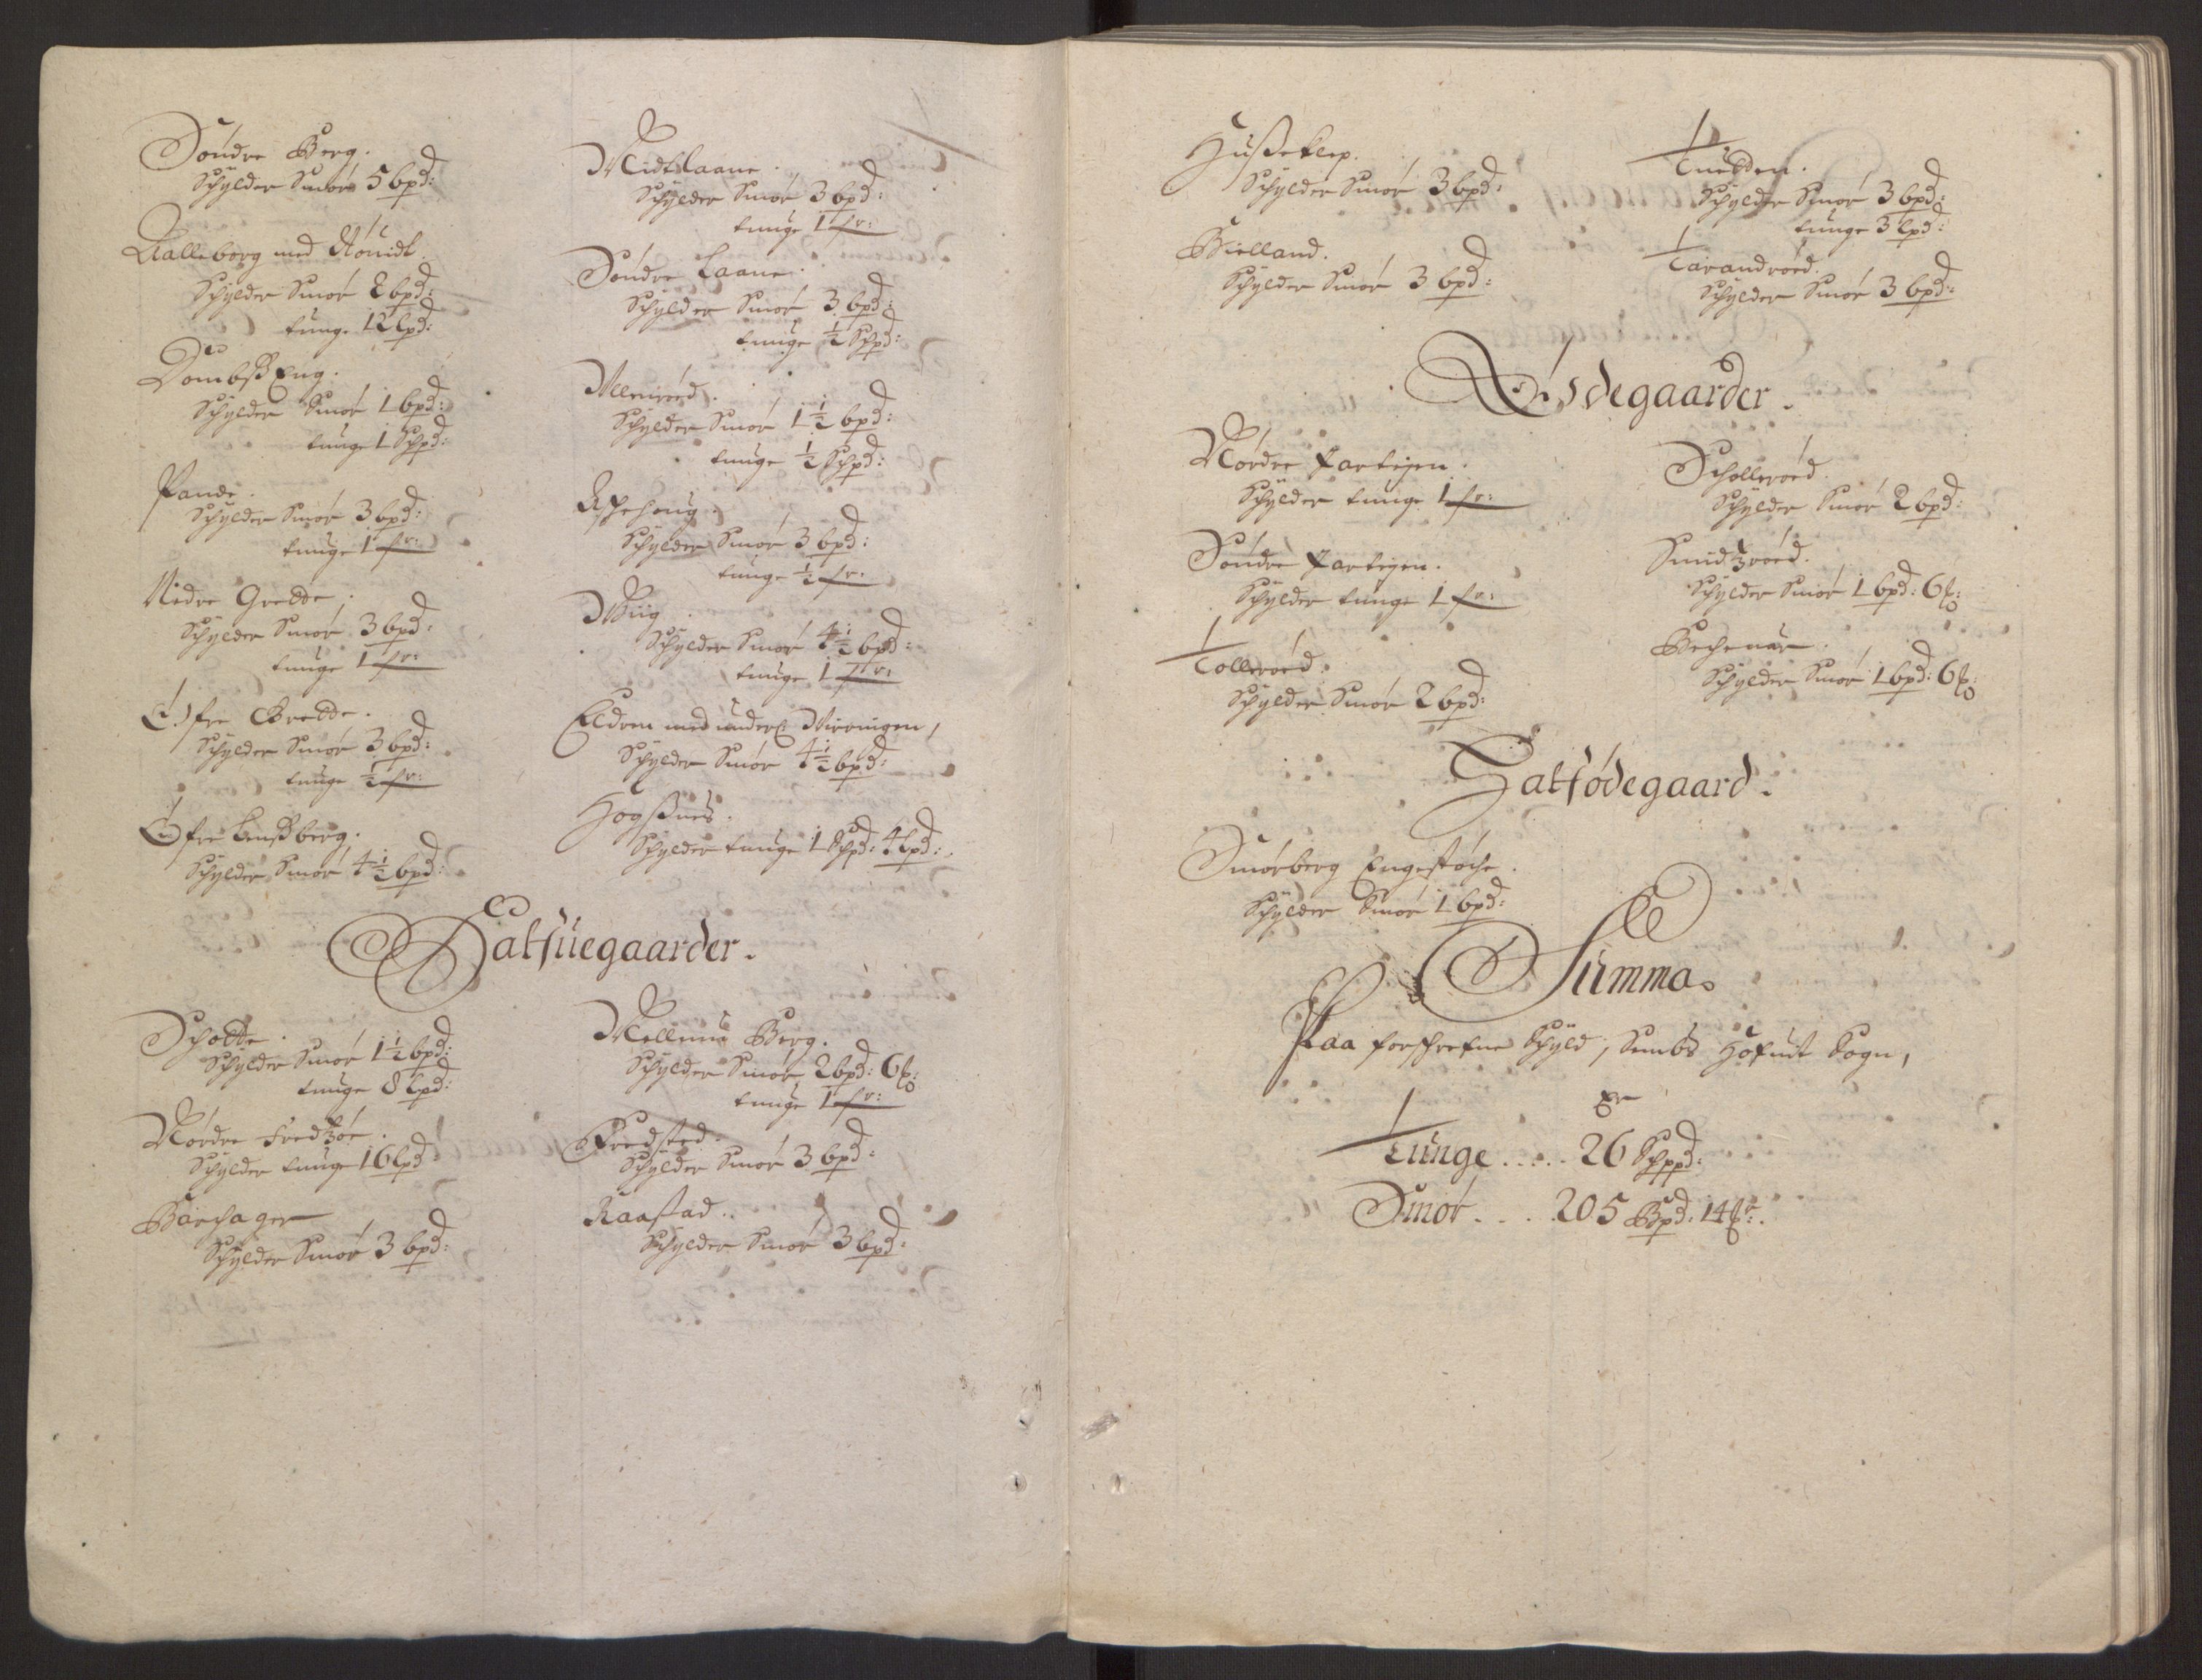 Søndre Berg.
Schylder Smør 5 bpd:
Aalleborg med
Schylder Smør 2 bpd:
tunge 12 lpd:
Dombß Eng.
Schylder Smør 1 bpd:
tunge 1 Schpd:
Pande.
Schylder Smør 3 bpd:
tunge 1 fr:
Nidre Gredde.
Schylder Smør 3 bpd:
tunge 1 fr:
Øfre Gredde.
Schylder Smør 3 bpd:
tunge ½ fr:
Øfre Lensberg.
Schylder Smør 4½ bpd:
Midtlaane.
Schylder Smør 3 bpd:
tunge 1 fr:
Søndre Laane.
Schylder Smør 3 bpd:
tunge ½ Schpd:
Ullenrød.
Schylder Smør 1½ bpd:
tunge ½ Schpd:
Aspehoug.
Schylder Smør 3 bpd:
tunge ½ fr:
Wiig.
Schylder Smør 4½ bpd:
tunge 1 fr:
Eldren med under Wirvingen,
Schylder Smør 4½ bpd:
Hogßnes.
Schylder tunge 1 Schpd: 4 lpd:
Halfuegaarder.
Schotte.
Schylder Smør 1½ bpd:
tunge 8 lpd:
Nordre Fredzør.
Schylder tunge 16 lpd:
Barchager
Schylder Smør 3 bpd:
Mellum Berg.
Schylder Smør 2 bpd: 6 ℔:
tunge 1 fr:
Fredsted.
Schylder Smør 3 bpd:
Raastad.
Schylder Smør 3 bpd:
Hußeklep.
Schylder Smør 3 bpd:
Bielland.
Schylder Smør 3 bpd:
Tuedten.
Schylder Smør 3 bpd:
tunge 3 lpd:
Tarandrød.
Schylder Smør 3 bpd:
Ødegaarder.
Nordre Partejen.
Schylder tunge 1 fr:
Søndre Partejen.
Schylder tunge 1 fr:
Tollerød.
Schylder Smør 2 bpd:
Schollerød.
Schylder Smør 2 bpd:
Smidzrød.
Schylder Smør 1 bpd: 6 ℔:
Bechevar.
Schylder Smør 1 bpd: 6 ℔:
Halfødegaard.
Smørberg Engestøche.
Schylder Smør 1 bpd:
Summa
Paa forschrefne Schyld, Sembs Hofuit Sogn,
er
Tunge ..... 26 Schpd:
Smør .... 205 Bpd: 14 ℔: